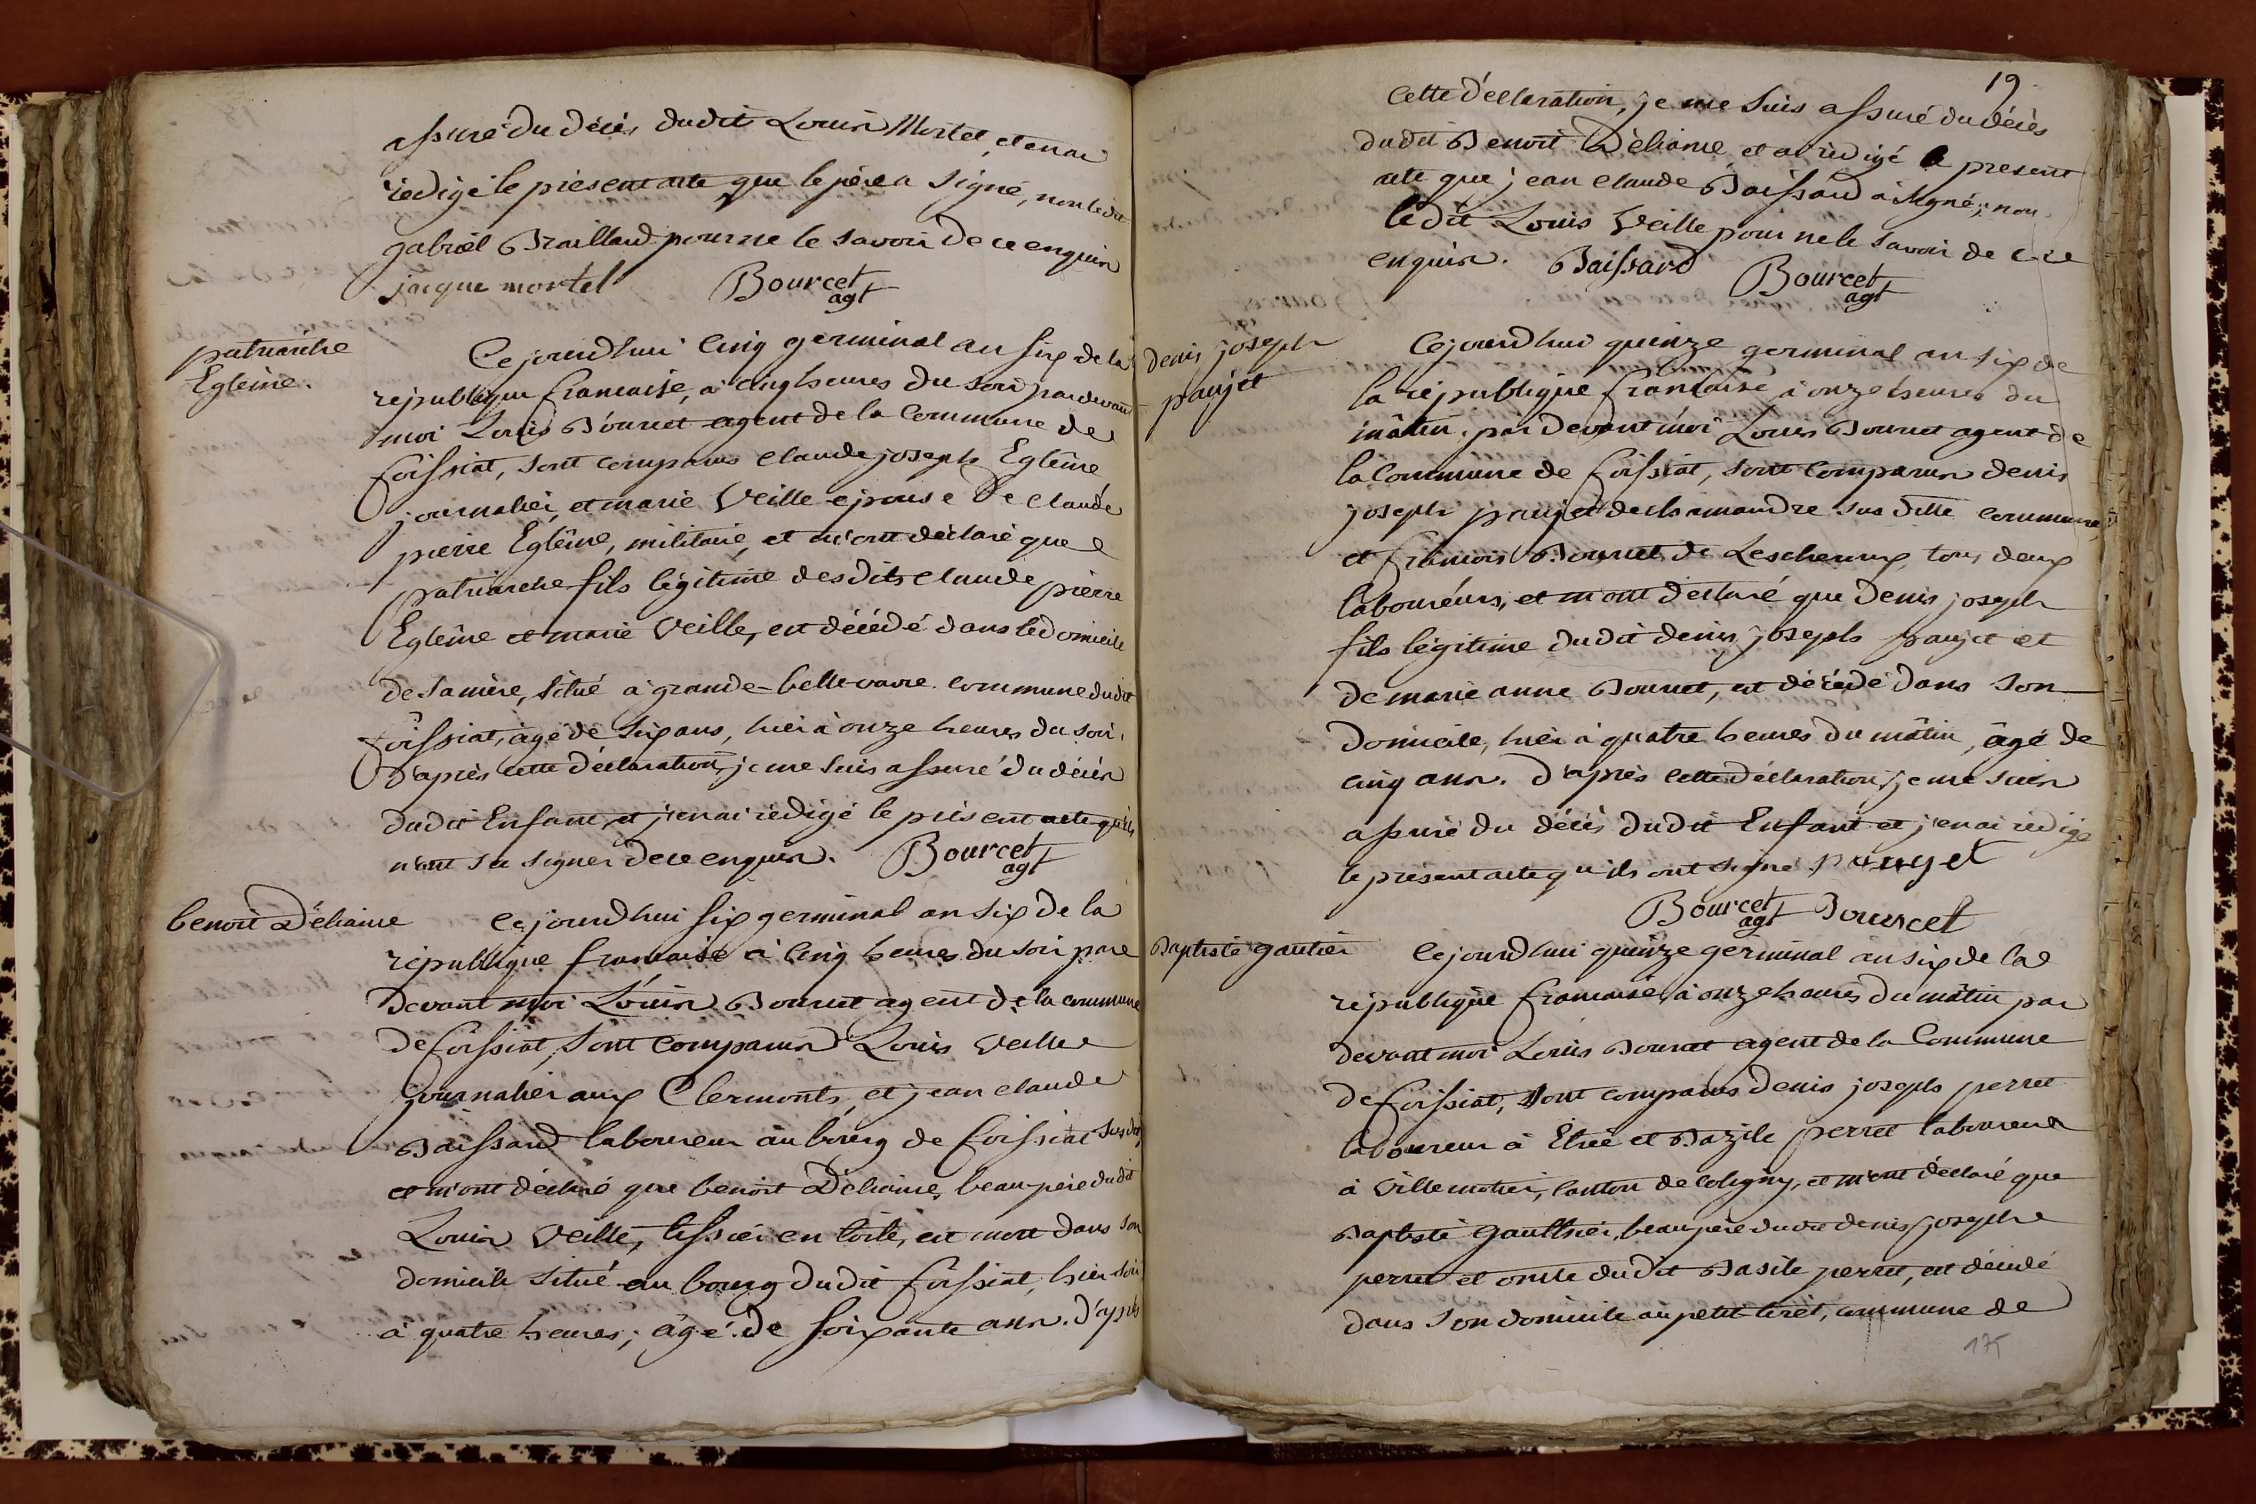 assuré du décès dudit Louis Mortel, et en ai
rédigé le présent acte que le père a signé, non ledit
gabriël Braillard pour ne le savoir de ce enquis
jacque mortel Bourcet
agt
patriarche
Egleine.
Cejourd'hui cinq germinal an six de la
république francaise, à cinq heures du soir pardevant
moi Louis Bourcet agent de la Commune de
foissiat, sont comparus claude joseph Egleine
journalier, et marie Veille epouse de claude
pierre Egleine, militaire, et m'ont déclaré que
patriarche fils légitime desdits claude pierre
Egleine et marie Veille, est décédé dans le domicile
de sa mère, situé à grande-bellevavre commune dudit
foissiat, agé de six ans, hier à onze heures du soir,
d'après cette déclaration, je me suis assuré du décès
dudit Enfant, et j'en ai rédigé le présent acte qu'ils
n'ont su signer de ce enquis. Bourcet
agt
benoit Déliance
Cejourd'hui six germinal an six de la
république francaise à cinq heures du soir par
devant moi Louis Bourcet agent de la commune
de foissiat, sont comparus Louis Veille
journalier aux Clermonts, et jean claude
Baissard laboureur au bourg de foissiat susdit
et m'ont déclaré que benoit Déliance, beaupère dudit
Louis Veille, tissier en toile, est mort dans son
domicile situé au bourg dudit foissiat, hier soir
à quatre heures; âgé de soixante ans. d'après
19
cette déclaration, je me suis assuré du décès
dudit Benoit Déliance et ai rédigé le present
acte que jean claude Baissard a signé, non
ledit Louis Veille pour ne le savoir de ce
enquis. Baissard Bourcet
agt
denis joseph
paujet
Cejourd'hui quinze germinal an six de
la république francaise à onze heures du
mâtin, par devant moi Louis Bourcet agent de
la Commune de foissiat, sont comparus denis
joseph paujet de chamandre sus dite commune,
et francois Bourcet de Lescheroux, tous deux
laboureurs, et m'ont déclaré que denis joseph
fils légitime dudit denis joseph paujet et
de marie anne Bourcet, est décédé dans son
domicile, hier à quatre heures du mâtin, âgé de
cinq ans. d'après cette déclaration, je me suis
assuré du décès dudit Enfant et j'en ai rédigé
le présent acte qu'ils ont signé. paujet
Bourcet Bourcet
agt
Baptiste gautier
Cejourd'hui quinze germinal an six de la
république francaise, à onze heures du mâtin par
devant moi Louis Bourcet agent de la Commune
de foissiat, sont comparus denis joseph perret
laboureur à Etrée et Bazile perret laboureur
à Villemotier, canton de coligny, et m'ont déclaré que
Baptiste gaulthier, beaupère dudit denis joseph
perret et oncle dudit Basile perret, est décédé
dans son domicile au petit tiret, commune de
175